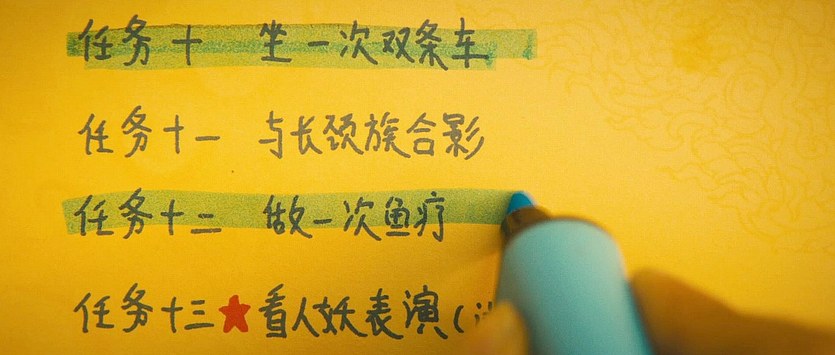 任务十 坐一次双条车
任务十一 与长颈族合影
任务十二 做一次鱼疗
任务十三★看人妖表演(